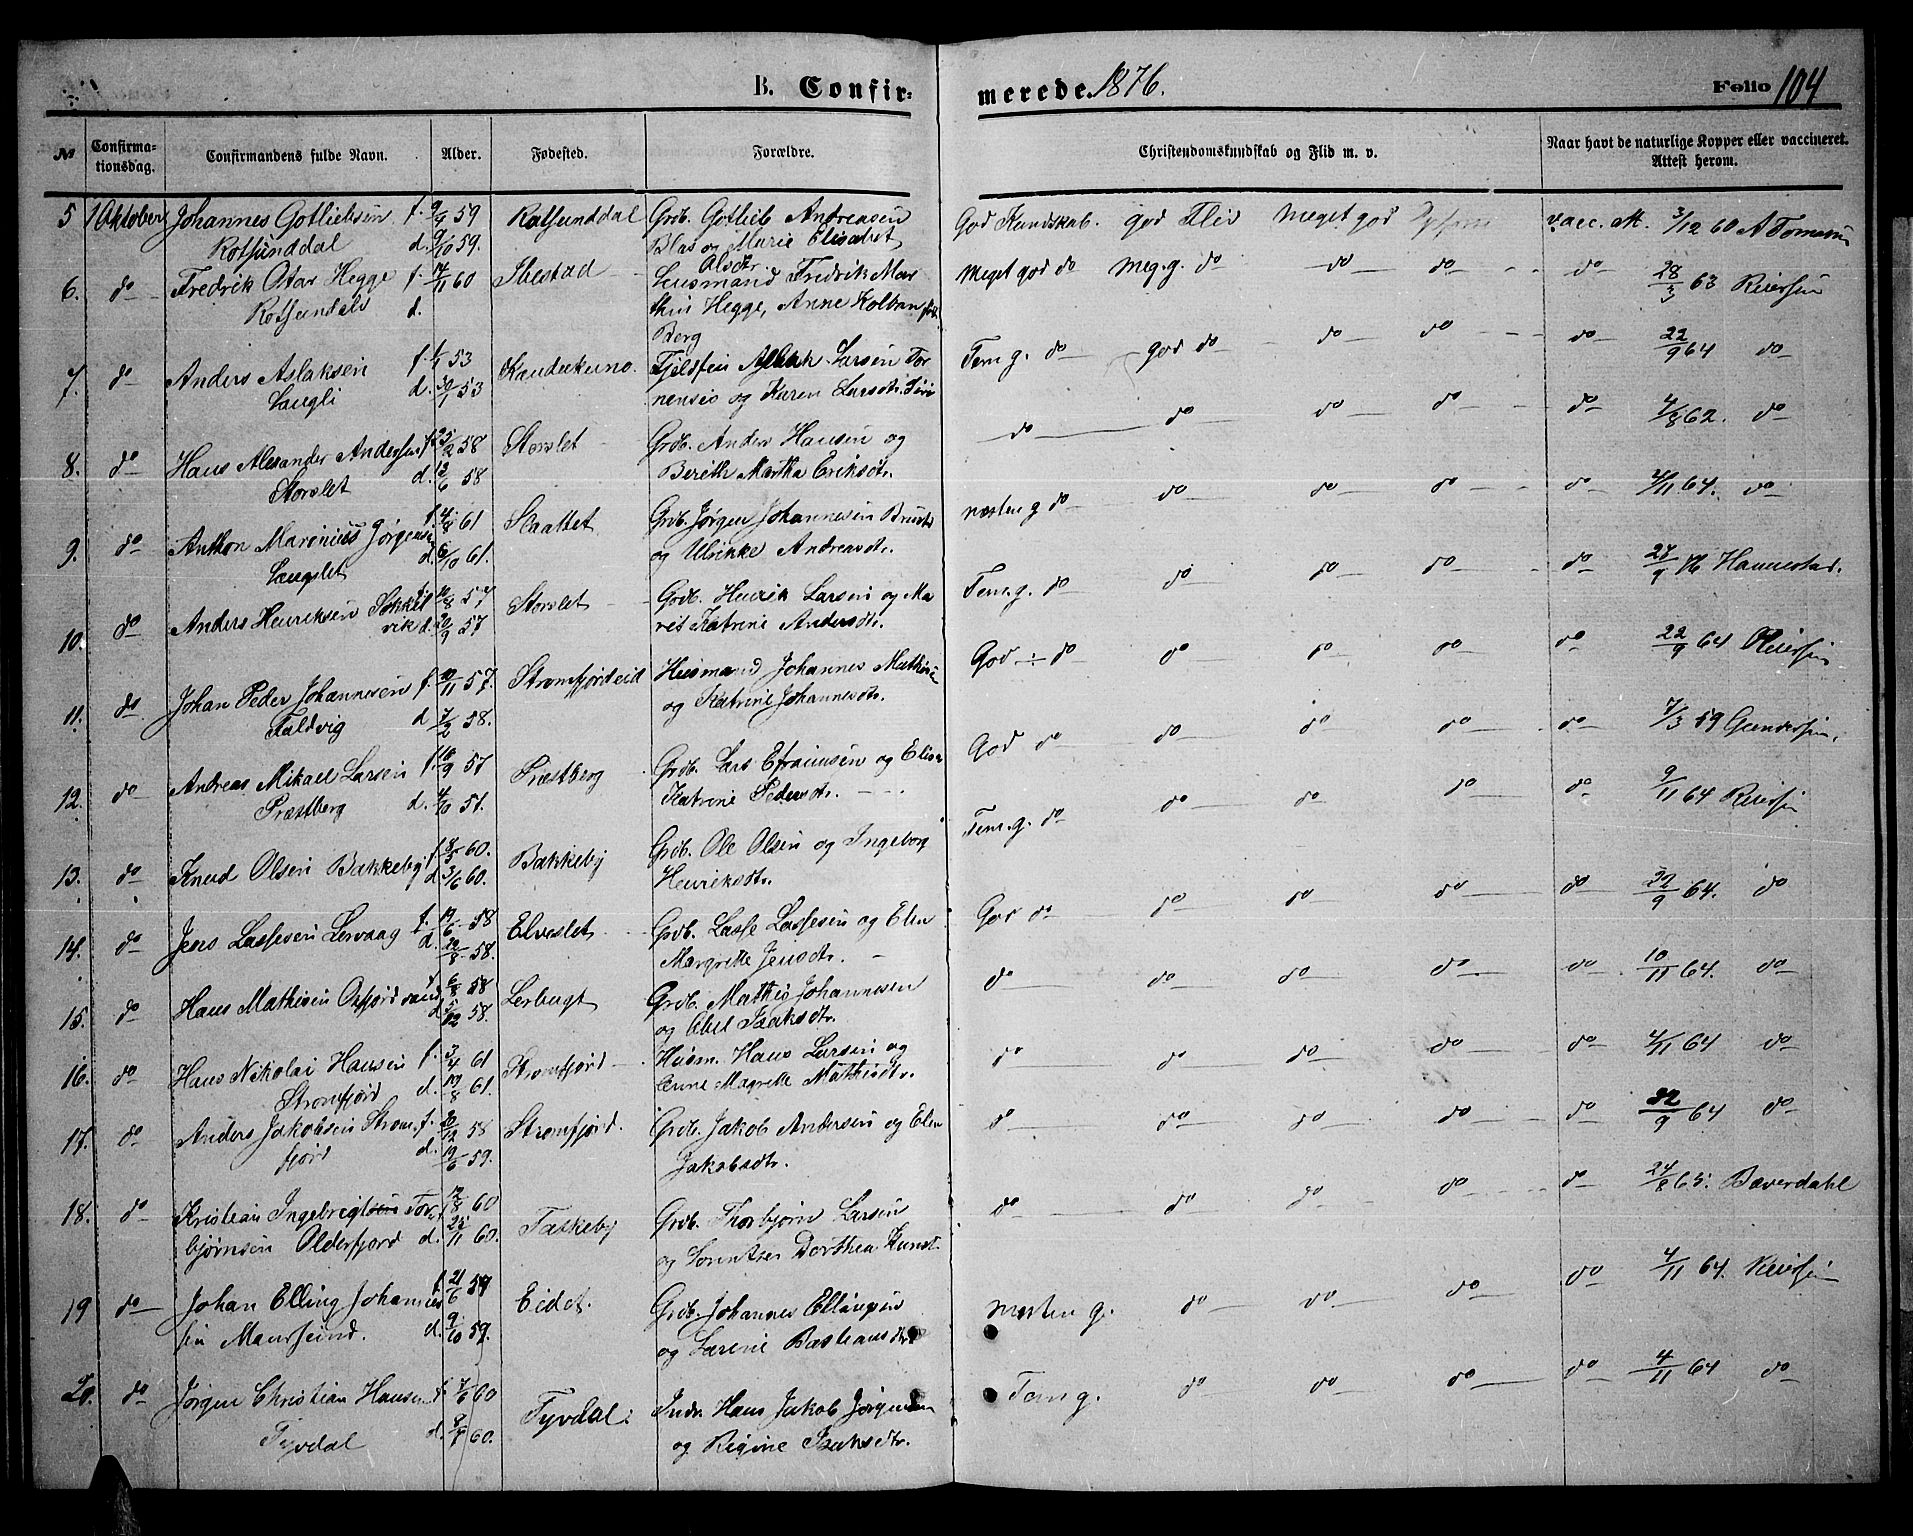 B. Confirmerede. 1876. Folio 104
№ Confirmationsdag. Confirmandens fulde Navn. Alder. Fødested. Forældre. Christendomskundskab og Flid m. v. Naar havt de naturlige Kopper eller vaccineret. Attest herom.
5 1 Oktober Johannes Gotliebsen f. 9/9 59 Rotsunddal Grdb. Gotlieb Andreasen God Kundskab. god Flid meget god vacc. At. 3/12 60
Rotsunddal d. 9/10 59. Blas og Marie Elisabet
Olsdtr.
6. do Fredrik Otar Hegge f. 17/11 60 Ibestad Lensmand Fredrik Mar meget god do meg. g. do do do do 28/3 63 Reiersen
Rotsundelv d. thin Hegge, Anne Kolban
Berg
7. do Anders Aslaksen f. 1/1 53 Kaudekeino. Fjeldfin Aslak Larsen Tor Tem. g. do god do do do do 22/9 64 do
Langli d. 30/1 53 nensis og Karen Larsdtr.
8. do Hans Alexander Andersen f. 25/2 58 Storslet Grdb. Anders Hansen og do do do do do 4/8 62. do
Storslet d. 12/6 58 Bereth Martha Eriksdtr.
9. do Anthon Marinius Jørgensen f. 4/8 61 Slaattet Grdb. Jørgen Johannesen næsten g do do do do do 4/11 64. do
Langslet d. 6/10 61. og Ulrikke Andreasdtr.
10. do Anders Henriksen Sokkel f. 10/8 57 Storslet Grdb. Henrik Larsen og Ma Tem. g. do do do do do 27/9 Hannestad.
vik d. 20/9 57 ret Katrine Andersdtr.
11. do Johan Peder Johannesen f. 10/11 57. Stromfjordeid Husmand Johannes Mathis God do do do do do 22/9 64 Reiersen
Taldvig d. 7/2 58. og Katrine Johannesdtr.
12. do Andreas Mikael Larsen f. 18/9 57 Præstberg Grdb. Lars Efraimsen og Elisa God do do do do do 7/3 59 Gundersen.
Præstberg d. 4/10 57. Katrine Pedersdtr.
13. do Knud Olsen Bakkeby f. 8/5 60. Bakkeby Grdb. Ole Olsen og Ingeborg Tem. g. do do do do do 9/11 64 Reiersen
d. 3/6 60. Henriksdtr.
14. do Jens Lassesen Lervaag f. 19/6 58 Elveslet Grdb. Lasse Lassesen og Elen God do do do do do 22/9 64. do
d. 22/8 58. Margrette Jensdtr.
15. do Hans Mathisen Oxfjord f. 6/8 58 Lerbugt Grdb. Mathis Johannesen do do do do do 10/11 64. do
d. 5/12 58. og Abel Isaksdtr.
16. do Hans Nikolai Hansen f. 3/4 61 Stromfjord Husm. Hans Larsen og do do do do do 4/11 64 do
Stromfjord d. 19/8 61. Anne Magrette Mathisdtr.
17. do Anders Jakobsen Strom f. 20/12 58 Stromfjord. Grdb. Jakob Andersen og Elen do do do do do 22/9 64 do
fjord d. 19/6 59. Jakobsdtr.
18. do Kristian Ingebrigtsen Tor f. 12/8 60 Taskeby Grdb. Thorbjørn Larsen do do do do do 24/8 65. Bæverdahl
bjørnsen Olderfjord d. 25/11 60. og Lorentse Dorthea Kunst.
19 do Johan Elling Johannes f. 21/6 59 Eidet. Grdb. Johannes Ellingsen næsten g. do do do do 4/11 64. Reiersen
sen Maursund. d. 9/10 59. og Larine Bastiansdtr
20. do Jørgen Christian Hansen f. 7/6 60 Tyvdal. Indr. Hans Jakob Jørgensen Tem g. do do do do 4/11 64 do
Tyvdal d. 8/7 60. og Regine Isaksdtr.